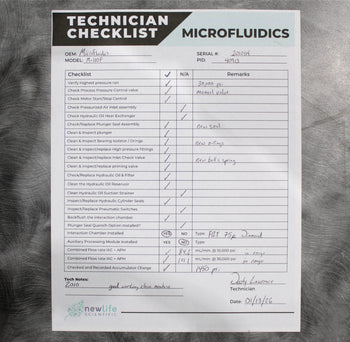 TECHNICIAN
CHECKLIST
MICROFLUIDICS
OEM: Microfluidics
SERIAL #:
MODEL: M-110P
PID:
Checklist N/A Remarks
Verify Highest pressure run 30,000 psi
Check Process Pressure Control valve manual valve
Check Motor Start/Stop Control
Check Pressurized Air Inlet assembly
Check Hydraulic Oil Heat Exchanger
Check/Replace Plunger Seal Assembly new seal
Clean & Inspect plunger
Clean & Inspect Bearing Isolator / Orings
Clean & Inspect/replace High pressure fittings new o-rings
Clean & Inspect/replace Inlet Check Valve
Clean & Inspect/replace priming valve new ball & spring
Check/Replace Hydraulic Oil & Filter
Clean the Hydraulic Oil Reservoir
Clean Hydraulic Oil Suction Strainer
Inspect/Replace Hydraulic Cylinder Seals
Inspect/Replace Pneumatic Switches
Backflush the Interaction chamber
Plunger Seal Quench Option Installed?
Interaction Chamber Installed YES NO Type 75µ Diamond
Auxiliary Processing Module Installed YES NO Type
Combined Flow rate IXC + APM mL/min @ 10,000 psi in range
Combined Flow rate IXC + APM mL/min @ 30,000 psi in range
Checked and Recorded Accumulator Charge 1450 psi
Tech Notes:
good working clean machine
newlife
SCIENTIFIC
Technician
Date: